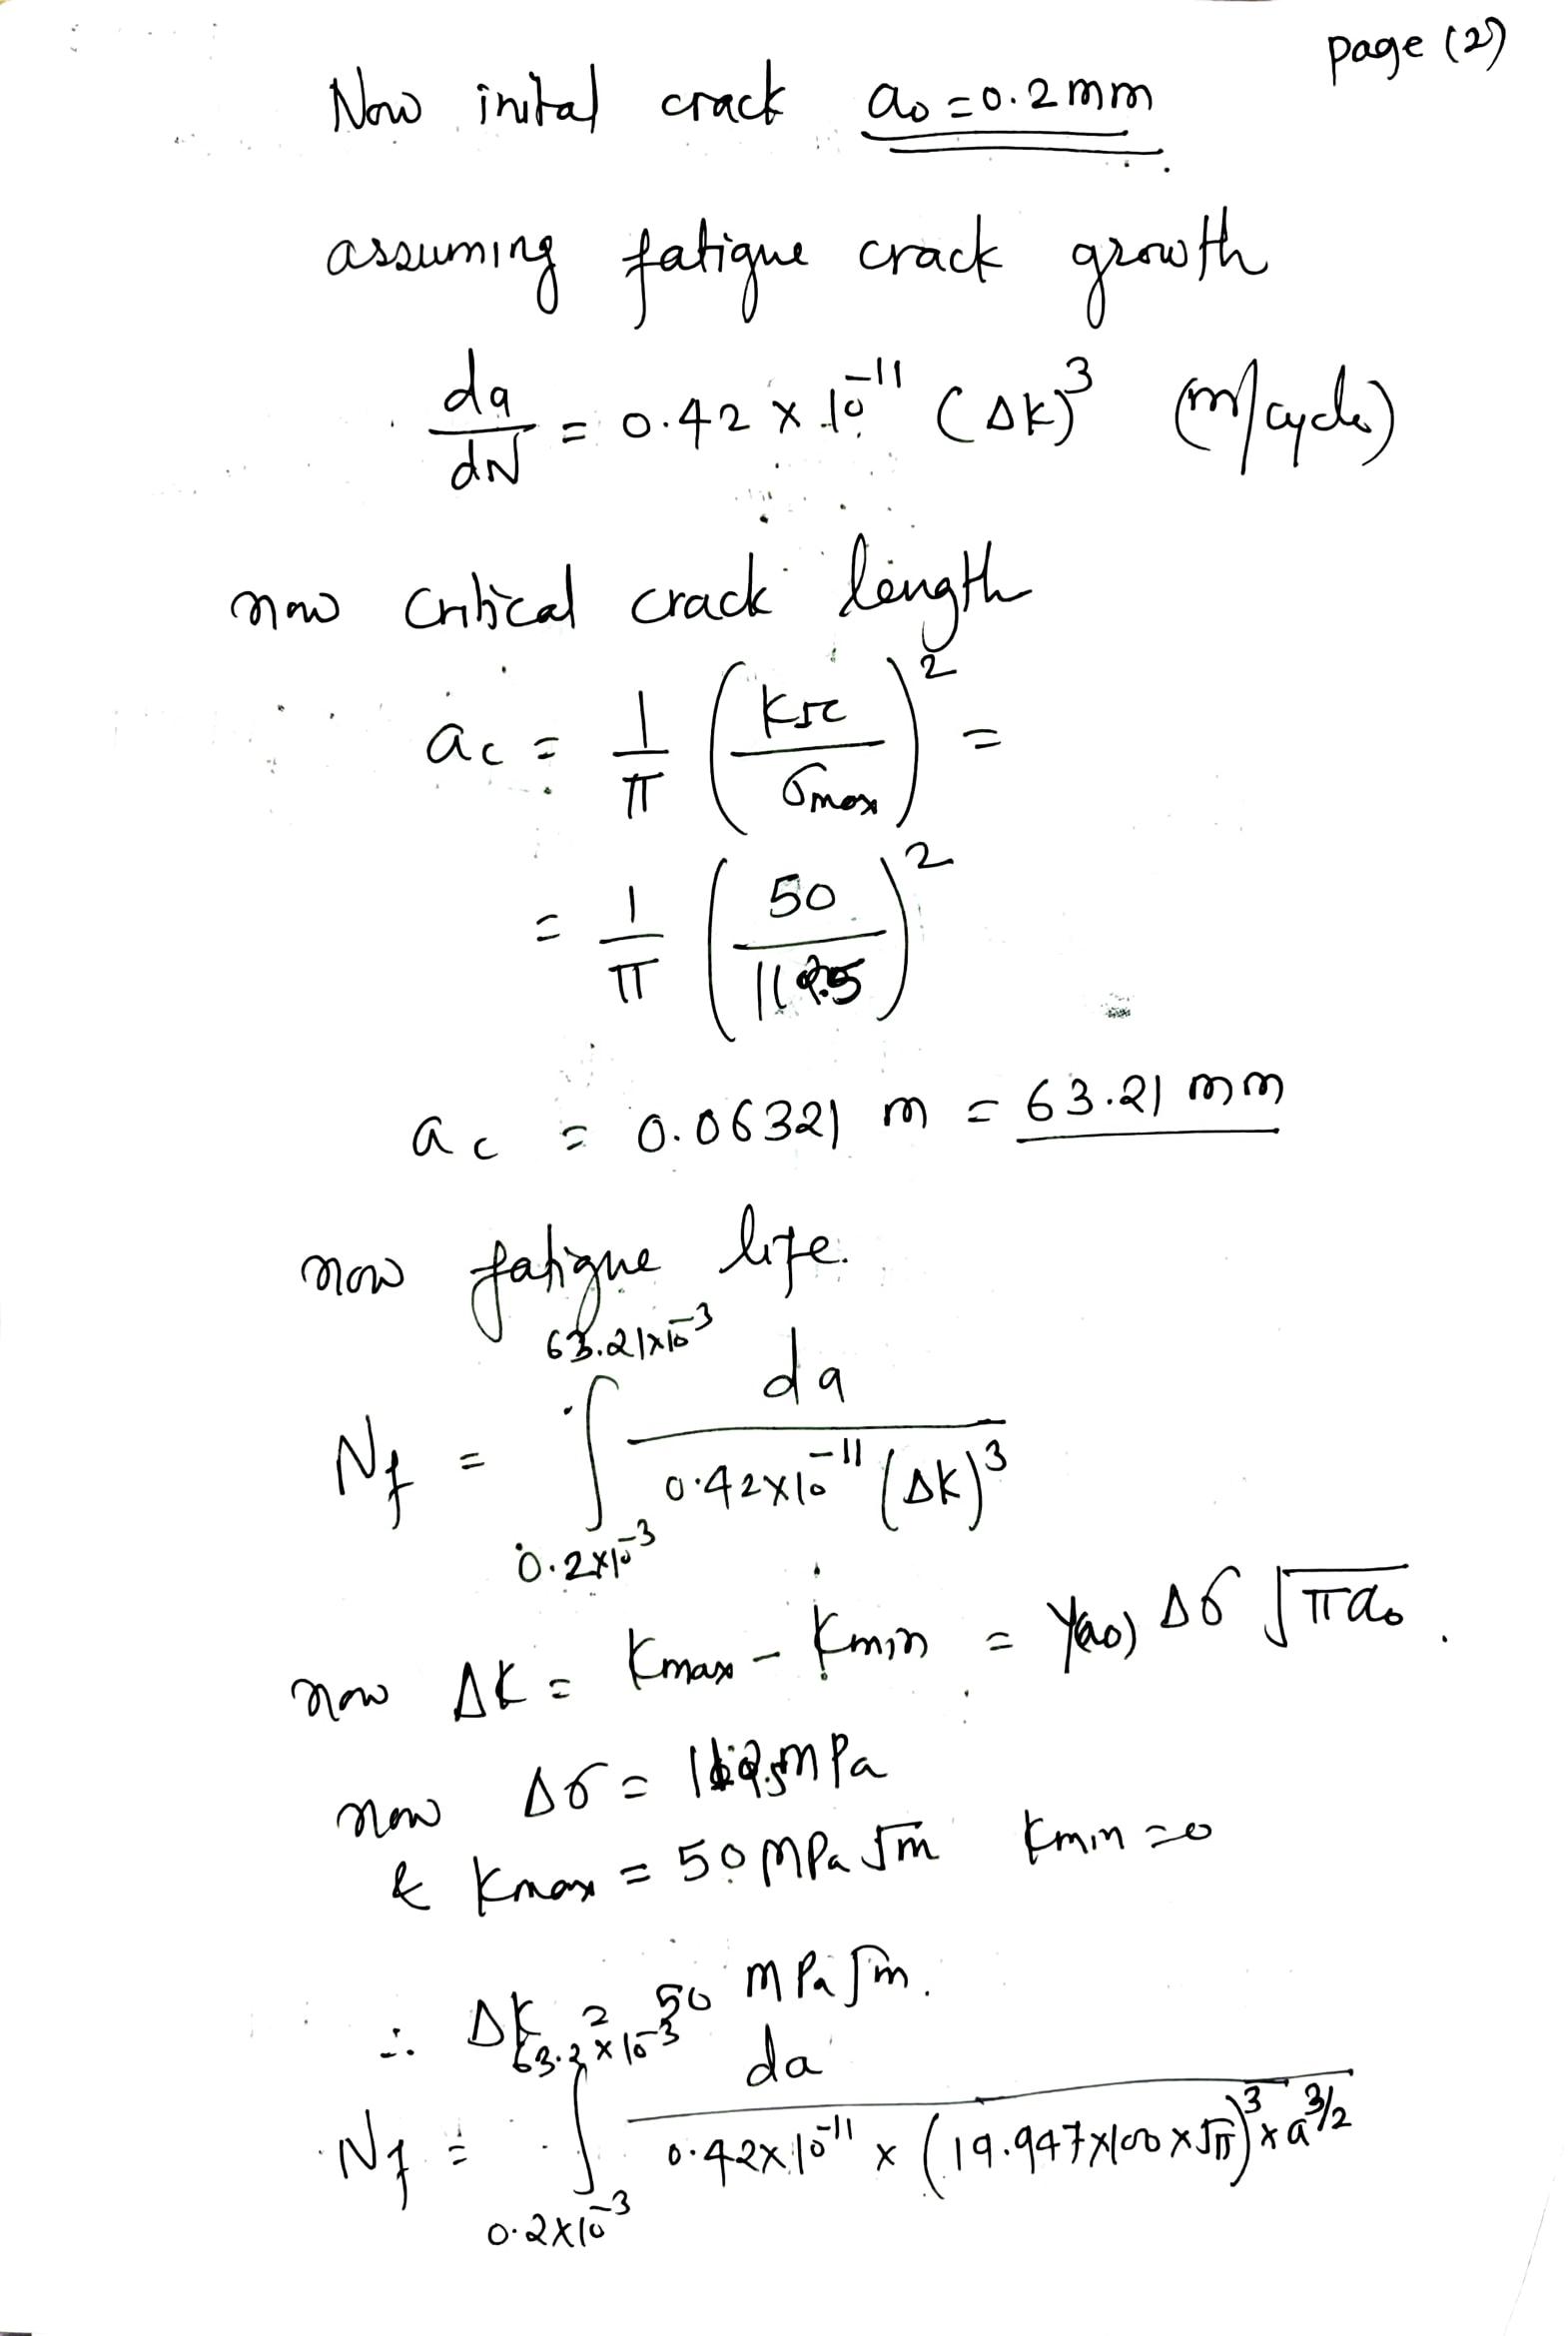 page (2)
Now inital crack a₀ = 0.2 mm
assuming fatigue crack growth
da/dN = 0.42 × 10⁻¹¹ (ΔK)³ (m/cycle)
now critical crack length
a_c = 1/π (K_IC / σ_max)² =
= 1/π (50 / 112.5)²
a_c = 0.06321 m = 63.21 mm
now fatigue life.
N_f = ∫_{0.2×10⁻³}^{63.21×10⁻³} da / (0.42×10⁻¹¹ (ΔK)³)
now ΔK = K_max - K_min = Y(a₀) Δσ √(πa₀) .
now Δσ = 112.5 MPa
& K_max = 50 MPa √m K_min = 0
∴ ΔK = 50 MPa √m.
N_f = ∫_{0.2×10⁻³}^{63.2×10⁻³} da / (0.42×10⁻¹¹ × (19.947×100×√π)³ × a^{3/2})